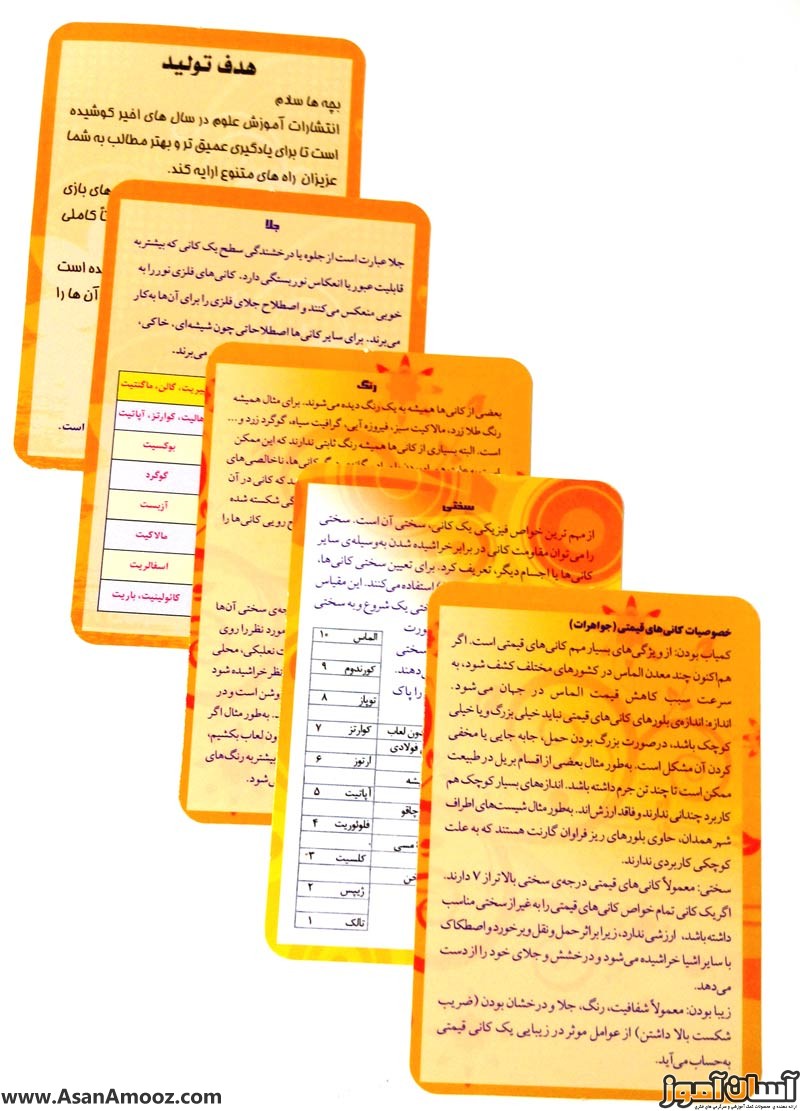 هدف تولید
بچه ها سلام
انتشارات آموزش علوم در سال های اخیر کوشیده
است تا برای یادگیری عمیق تر و بهتر مطالب به شما
عزیزان راه های متنوع ارایه کند.
های بازی
کاملی
است
آن ها را
است.
جلا
جلا عبارت است از جلوه یا درخشندگی سطح یک کانی که بیشتر به
قابلیت عبور یا انعکاس نور بستگی دارد. کانی‌های فلزی نور را به
خوبی منعکس می‌کنند و اصطلاح جلای فلزی را برای آن‌ها به‌کار
می‌برند. برای سایر کانی‌ها اصطلاحاتی چون شیشه‌ای، خاکی،
می‌برند.
پیریت، گالن، ماگنتیت
هالیت، کوارتز، آپاتیت
بوکسیت
گوگرد
آزبست
مالاکیت
اسفالریت
کائولینیت، باریت
رنگ
بعضی از کانی‌ها همیشه به یک رنگ دیده می‌شوند. برای مثال همیشه
رنگ طلا زرد، مالاکیت سبز، فیروزه آبی، گرافیت سیاه، گوگرد زرد و...
است. البته بسیاری از کانی‌ها همیشه رنگ ثابتی ندارند که این ممکن
کانی‌ها، ناخالصی‌های
که کانی در آن
شکسته شده
رویی کانی‌ها را
سختی آن‌ها
مورد نظر را روی
نعلبکی، محلی
نظر خراشیده شود
روشن است و در
به‌طور مثال اگر
بدون لعاب بکشیم،
بیشتر به رنگ‌های
سختی
از مهم ترین خواص فیزیکی یک کانی، سختی آن است. سختی
را می‌توان مقاومت کانی در برابر خراشیده شدن به‌وسیله‌ی سایر
کانی‌ها یا اجسام دیگر، تعریف کرد. برای تعیین سختی کانی‌ها،
استفاده می‌کنند. این مقیاس
یک شروع و به سختی
سختی
را پاک
الماس ۱۰
کورندوم ۹
توپاز ۸
کوارتز ۷
بدون لعاب
فولادی
ارتوز ۶
آپاتیت ۵
چاقو
فلوئوریت ۴
مسی
کلسیت ۳
ژیپس ۲
تالک ۱
خصوصیات کانی‌های قیمتی (جواهرات)
کمیاب بودن: از ویژگی‌های بسیار مهم کانی‌های قیمتی است. اگر
هم‌اکنون چند معدن الماس در کشورهای مختلف کشف شود، به
سرعت سبب کاهش قیمت الماس در جهان می‌شود.
اندازه: اندازه‌ی بلورهای کانی‌های قیمتی نباید خیلی بزرگ و یا خیلی
کوچک باشد، در صورت بزرگ بودن حمل، جابه جایی یا مخفی
کردن آن مشکل است. به‌طور مثال بعضی از اقسام بریل در طبیعت
ممکن است تا چند تن جرم داشته باشد. اندازه‌های بسیار کوچک هم
کاربرد چندانی ندارند و فاقد ارزش‌اند. به‌طور مثال شیست‌های اطراف
شهر همدان، حاوی بلورهای ریز فراوان گارنت هستند که به علت
کوچکی کاربردی ندارند.
سختی: معمولاً کانی‌های قیمتی درجه‌ی سختی بالاتر از ۷ دارند.
اگر یک کانی تمام خواص کانی‌های قیمتی را به غیر از سختی مناسب
داشته باشد، ارزشی ندارد، زیرا بر اثر حمل و نقل و برخورد و اصطکاک
با سایر اشیا خراشیده می‌شود و درخشش و جلای خود را از دست
می‌دهد.
زیبا بودن: معمولاً شفافیت، رنگ، جلا و درخشان بودن (ضریب
شکست بالا داشتن) از عوامل موثر در زیبایی یک کانی قیمتی
به‌حساب می‌آید.
www.AsanAmooz.com
آسان آموز